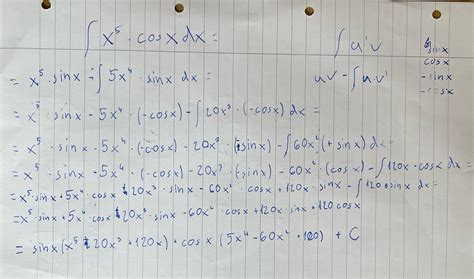 ∫ x⁵ · cosx dx =
∫ u'v
uv - ∫ u·v'
sinx
cosx
-sinx
-cosx
= x⁵ · sinx - ∫ 5x⁴ · sinx dx =
= x⁵ · sinx - 5x⁴ · (-cosx) - ∫ 20x³ · (-cosx) dx =
= x⁵ · sinx - 5x⁴ · (-cosx) - 20x³ · (sinx) - ∫ 60x² (+sinx) dx =
= x⁵ · sinx - 5x⁴ · (-cosx) - 20x³ · (sinx) - 60x² · (cosx) - ∫ 120x - cosx dx =
= x⁵ · sinx + 5x⁴ · cosx - 20x³ · sinx - 60x² · cosx + 120x · sinx - ∫ 120 sinx dx =
= x⁵ · sinx + 5x⁴ · cosx - 20x³ · sinx - 60x² · cosx + 120x · sinx + 120 cosx
= sinx (x⁵ - 20x³ + 120x) + cosx (5x⁴ - 60x² + 120) + C